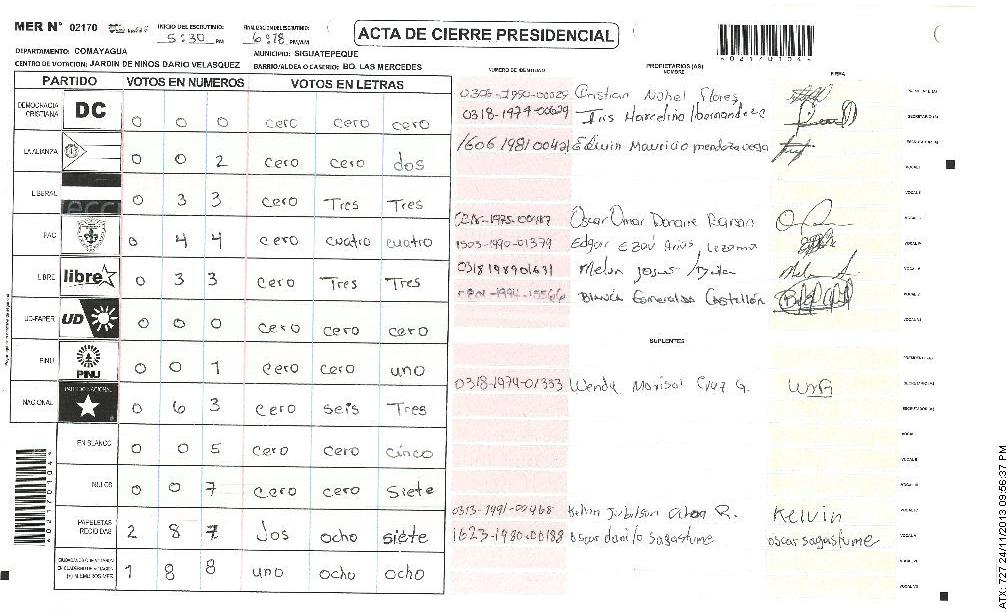 MER N° 02170
INICIO DEL ESCRUTINIO:
5:30 PM
FINALIZACION DEL ESCRUTINIO:
6:18 PM/AM
ACTA DE CIERRE PRESIDENCIAL
02170104
DEPARTAMENTO: COMAYAGUA
MUNICIPIO: SIGUATEPEQUE
CENTRO DE VOTACION: JARDIN DE NIÑOS DARIO VELASQUEZ
BARRIO/ALDEA O CASERIO: BO. LAS MERCEDES
PARTIDO VOTOS EN NUMEROS VOTOS EN LETRAS
DEMOCRACIA CRISTIANA DC 0 0 0 cero cero cero
LA ALIANZA 0 0 2 cero cero dos
LIBERAL 0 3 3 cero Tres Tres
PAC 0 4 4 cero cuatro cuatro
LIBRE libre 0 3 3 cero Tres Tres
UD-FAPER UD 0 0 0 cero cero cero
PINU PINU 0 0 1 cero cero uno
NACIONAL PARTIDO NACIONAL 0 6 3 cero seis Tres
EN BLANCO 0 0 5 cero cero cinco
NULOS 0 0 7 cero cero siete
PAPELETAS RECIBIDAS 2 8 7 dos ocho siete
1 8 8 uno ocho ocho
NUMERO DE IDENTIDAD
PROPIETARIOS (AS)
NOMBRE
FIRMA
Cristian Nohel Flores
0318-1974-00629 Iris Marcelina
1606 1981 00421 Edwin Mauricio mendoza vega
Oscar Omar
1503-1990-01379 Edgar
0318 1989 01631 Melvin
Blanca Esmeralda Castellón
SUPLENTES
0318-1974-01353 Wendy Marisol Cruz G.
0313-1991-00468 Kelvin Ochoa R. Kelvin
1623-1980-00188 oscar danilo sagastume oscar sagastume
02170104
ATX: 727 24/11/2013 09:56:37 PM